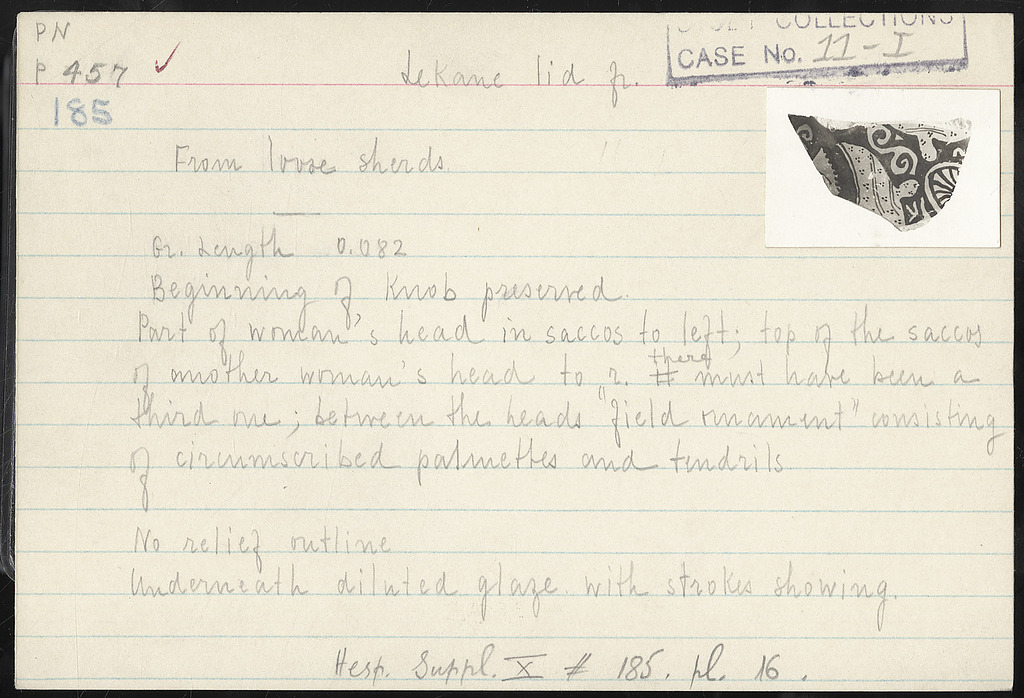 PN
P 457 ✓
185
Lekane lid fr.
COLLECTIONS
CASE No. 11-I
From loose sherds.
Gr. Length 0.082
Beginning of Knob preserved.
Part of woman's head in saccos to left; top of the saccos
of another woman's head to r. there must have been a
third one; between the heads "field ornament" consisting
of circumscribed palmettes and tendrils
No relief outline
Underneath diluted glaze with strokes showing.
Hesp. Suppl. X # 185. pl. 16.